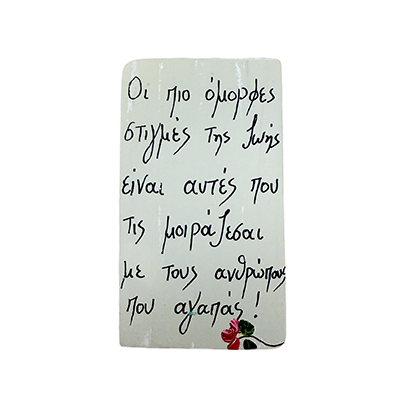 Οι πιο όμορφες
στιγμές της ζωής
είναι αυτές που
τις μοιράζεσαι
με τους ανθρώπους
που αγαπάς!